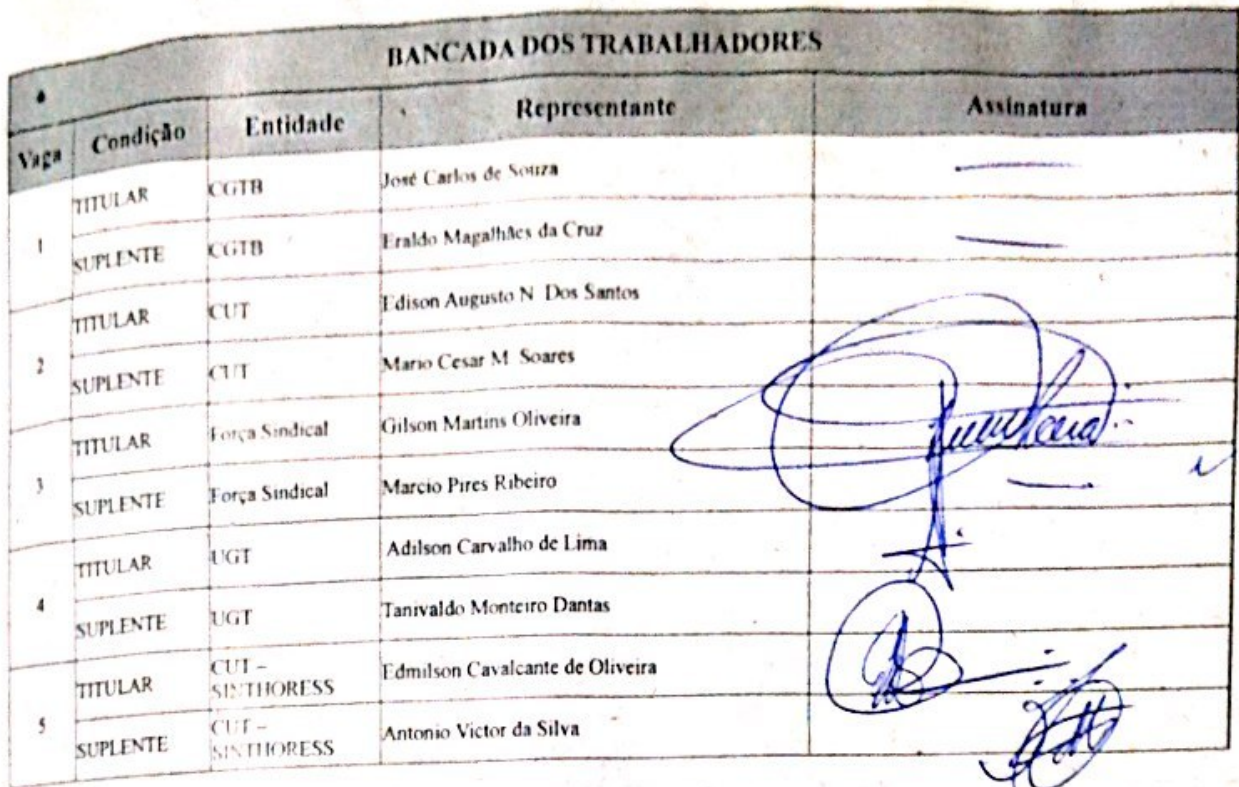 BANCADA DOS TRABALHADORES
Vaga Condição Entidade Representante Assinatura
1 TITULAR CGTB José Carlos de Souza
SUPLENTE CGTB Eraldo Magalhães da Cruz
2 TITULAR CUT Edison Augusto N Dos Santos
SUPLENTE CUT Mario Cesar M Soares
3 TITULAR Força Sindical Gilson Martins Oliveira
SUPLENTE Força Sindical Marcio Pires Ribeiro
4 TITULAR UGT Adilson Carvalho de Lima
SUPLENTE UGT Tanivaldo Monteiro Dantas
5 TITULAR CUT – SINTHORESS Edmilson Cavalcante de Oliveira
SUPLENTE CUT – SINTHORESS Antonio Victor da Silva